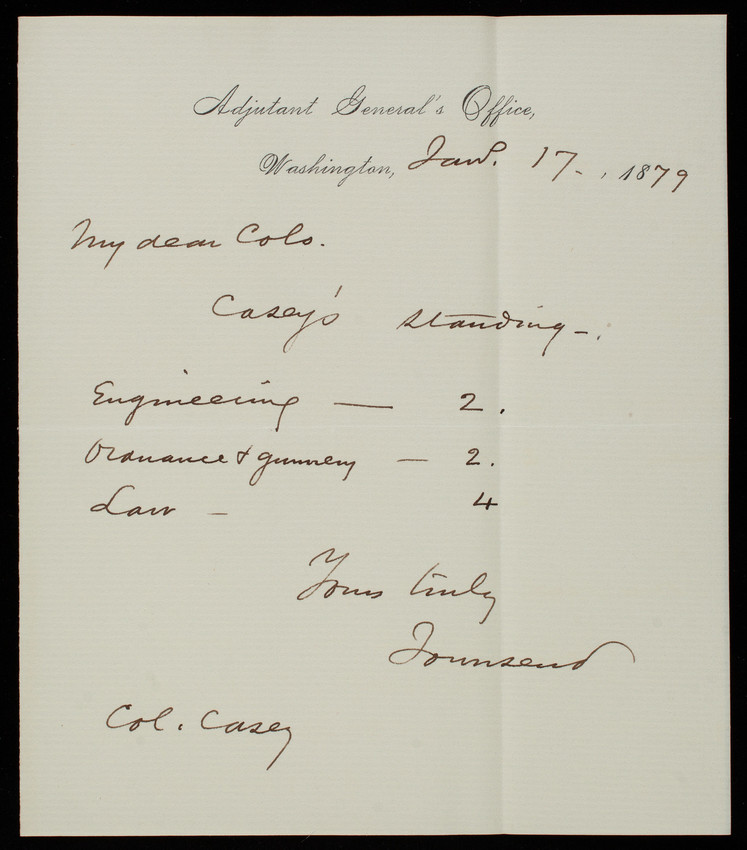 Adjutant General's Office,
Washington, Jan. 17-, 1879
My dear Colo.
Casey's standing-.
Engineering — 2.
Ordnance & gunnery — 2.
Law - 4
Yours truly
Townsend
Col. Casey